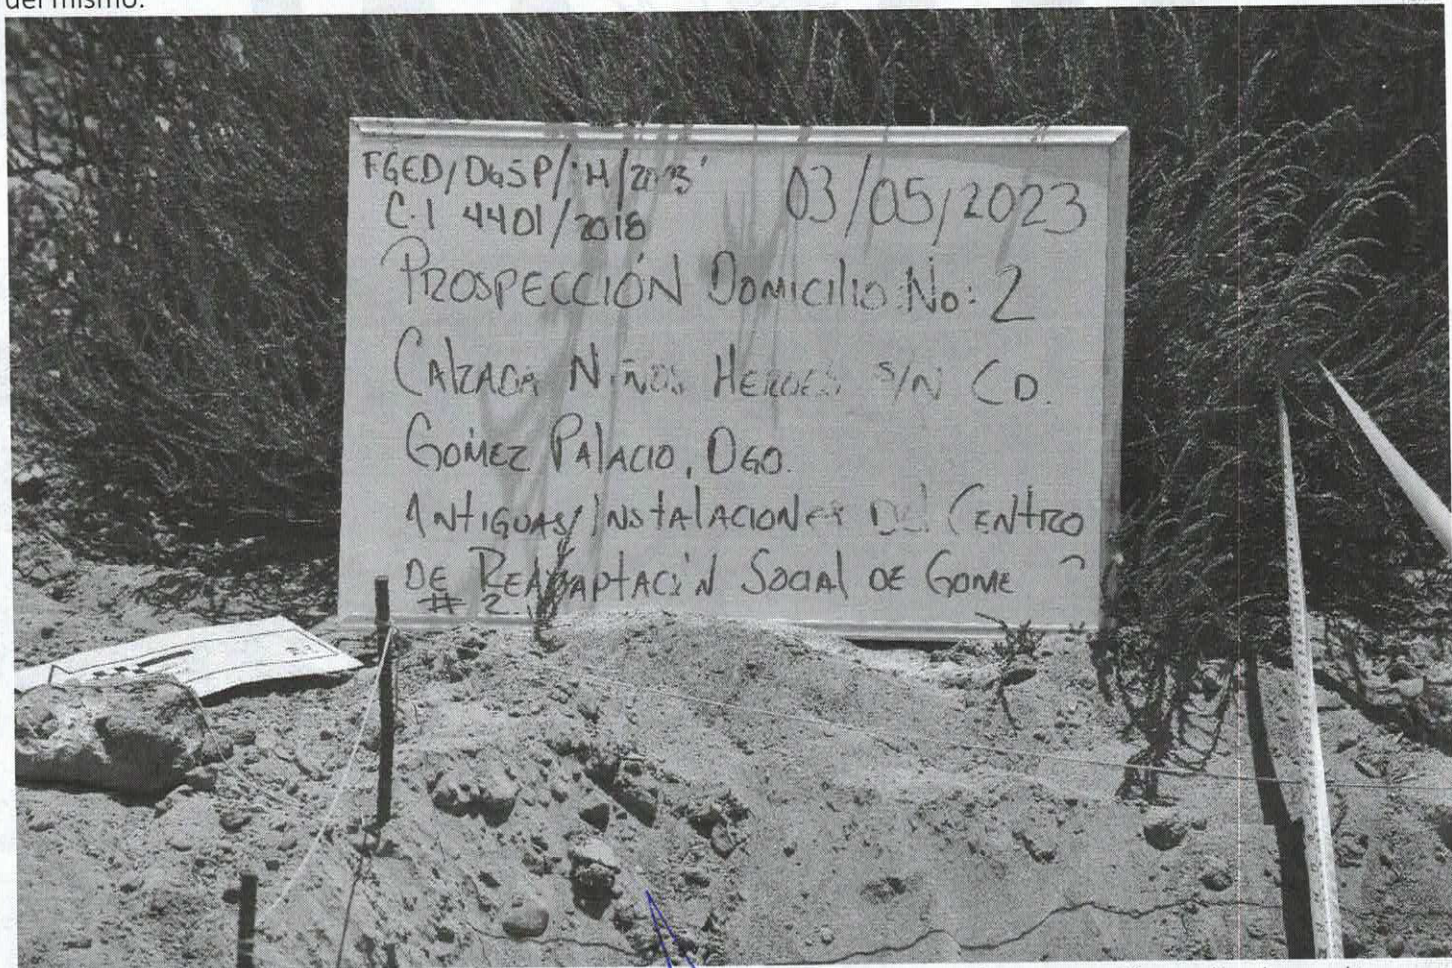 del mismo.
FGED/DGSP/ H/2023
C.I 4401/2018
03/05/2023
PROSPECCIÓN DOMICILIO: No: 2
CALZADA NIÑOS HEROES S/N CD.
GOMEZ PALACIO, DGO.
ANTIGUAS INSTALACIONES DEL CENTRO
DE READAPTACIÓN SOCIAL DE GOME
# 2